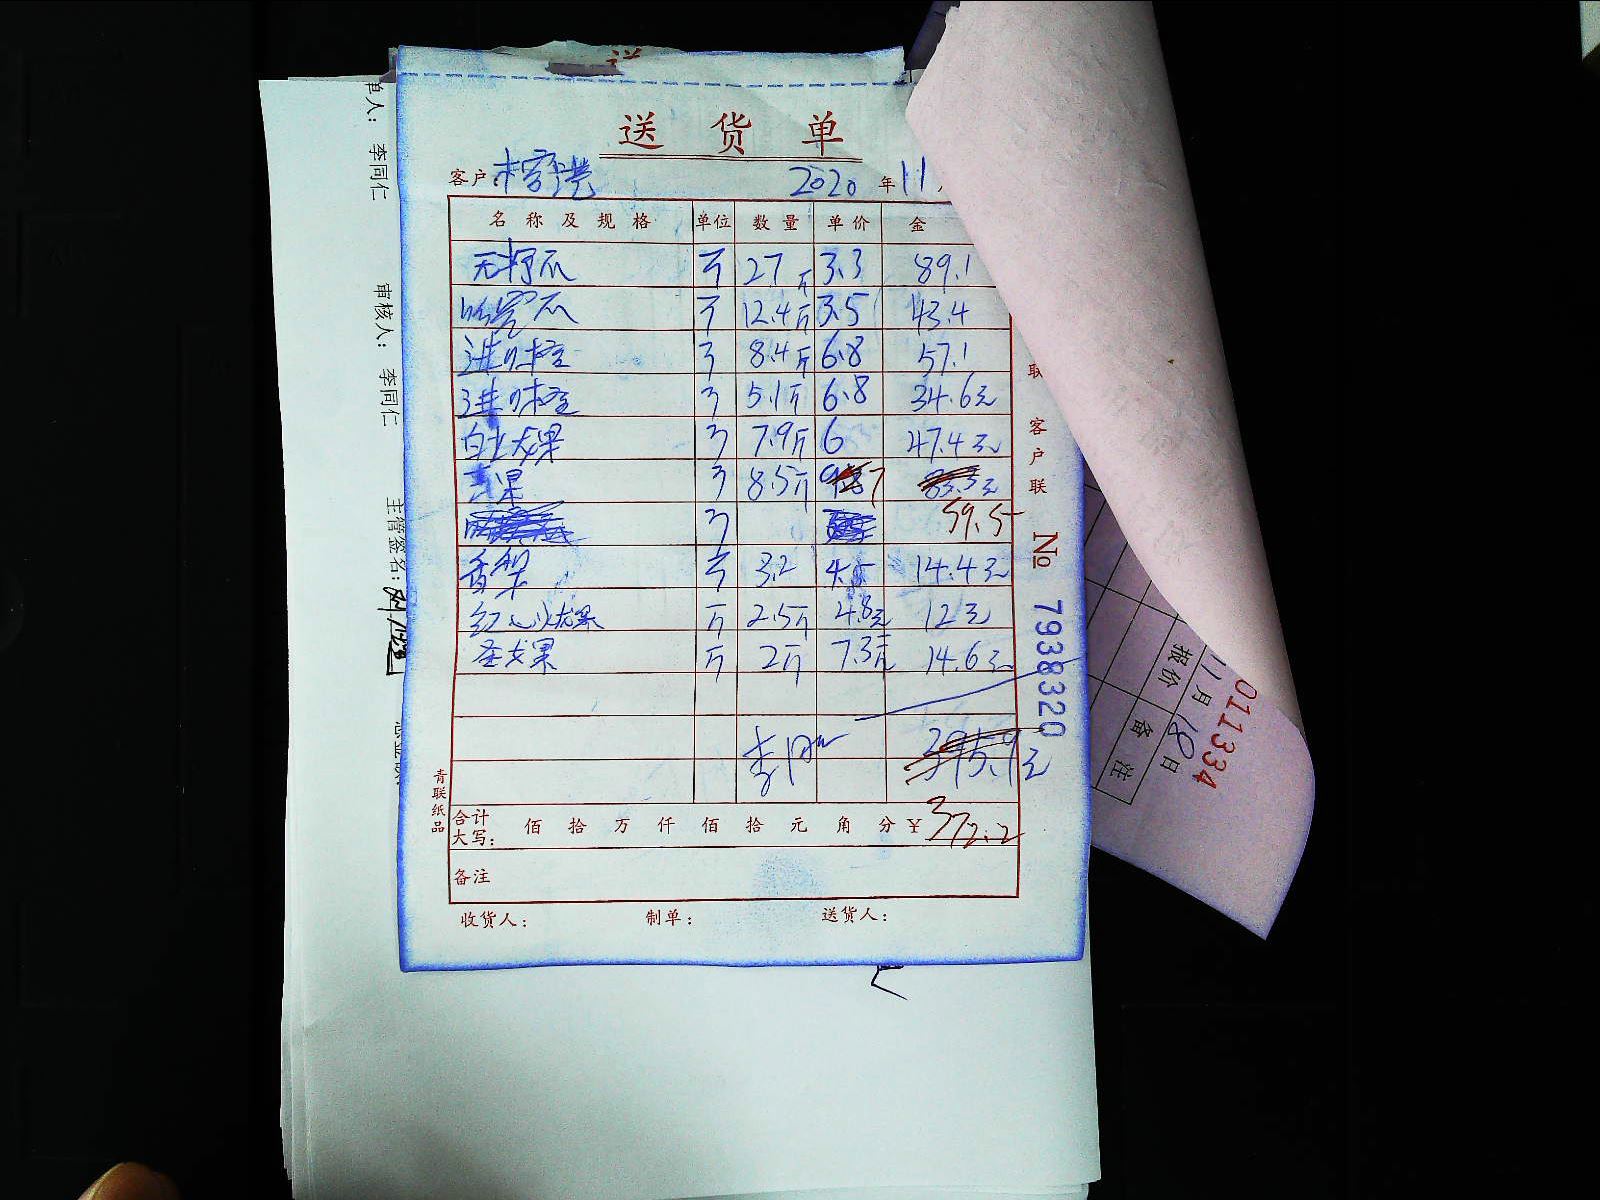 送货单
客户 2020年11
名称及规格 单位 数量 单价 金
27斤 3.3 89.1
12.4斤 3.5 43.4
进口橙 8.4斤 6.8 57.1
进口橙 5.1斤 6.8 34.6元
白火龙果 7.9斤 6 47.4元
8.5斤 7
59.5
香梨 3.2 4.5 14.4元
红心火龙果 斤 2.5斤 4.8元 12元
圣女果 斤 2斤 7.3元 14.6元
395.9元
合计大写: 佰拾万仟佰拾元角分 ¥372.2
备注
收货人: 制单: 送货人:
青联纸品
联 客户联
No 7938320
单人: 李同仁
审核人: 李同仁
主管签名:
011334
11月18日
报价 备注